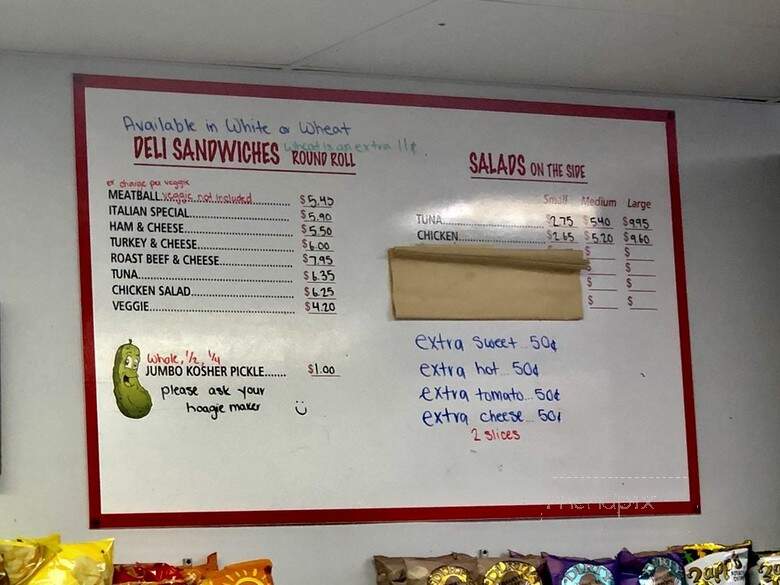 Available in White or Wheat
Wheat is an extra 11¢
DELI SANDWICHES ROUND ROLL
ex charge per veggie
MEATBALL veggie not included $5.45
ITALIAN SPECIAL $5.90
HAM & CHEESE $5.50
TURKEY & CHEESE $6.00
ROAST BEEF & CHEESE $7.95
TUNA $6.35
CHICKEN SALAD $6.25
VEGGIE $4.20
Whole, 1/2, 1/4
JUMBO KOSHER PICKLE....... $1.00
please ask your
hoagie maker
SALADS ON THE SIDE
Small Medium Large
TUNA $2.75 $5.40 $9.95
CHICKEN $2.65 5.20 $9.60
$ $
$ $
$ $
extra sweet... 50¢
extra hot... 50¢
extra tomato... 50¢
extra cheese... 50¢
2 slices
menupix
Zapp's